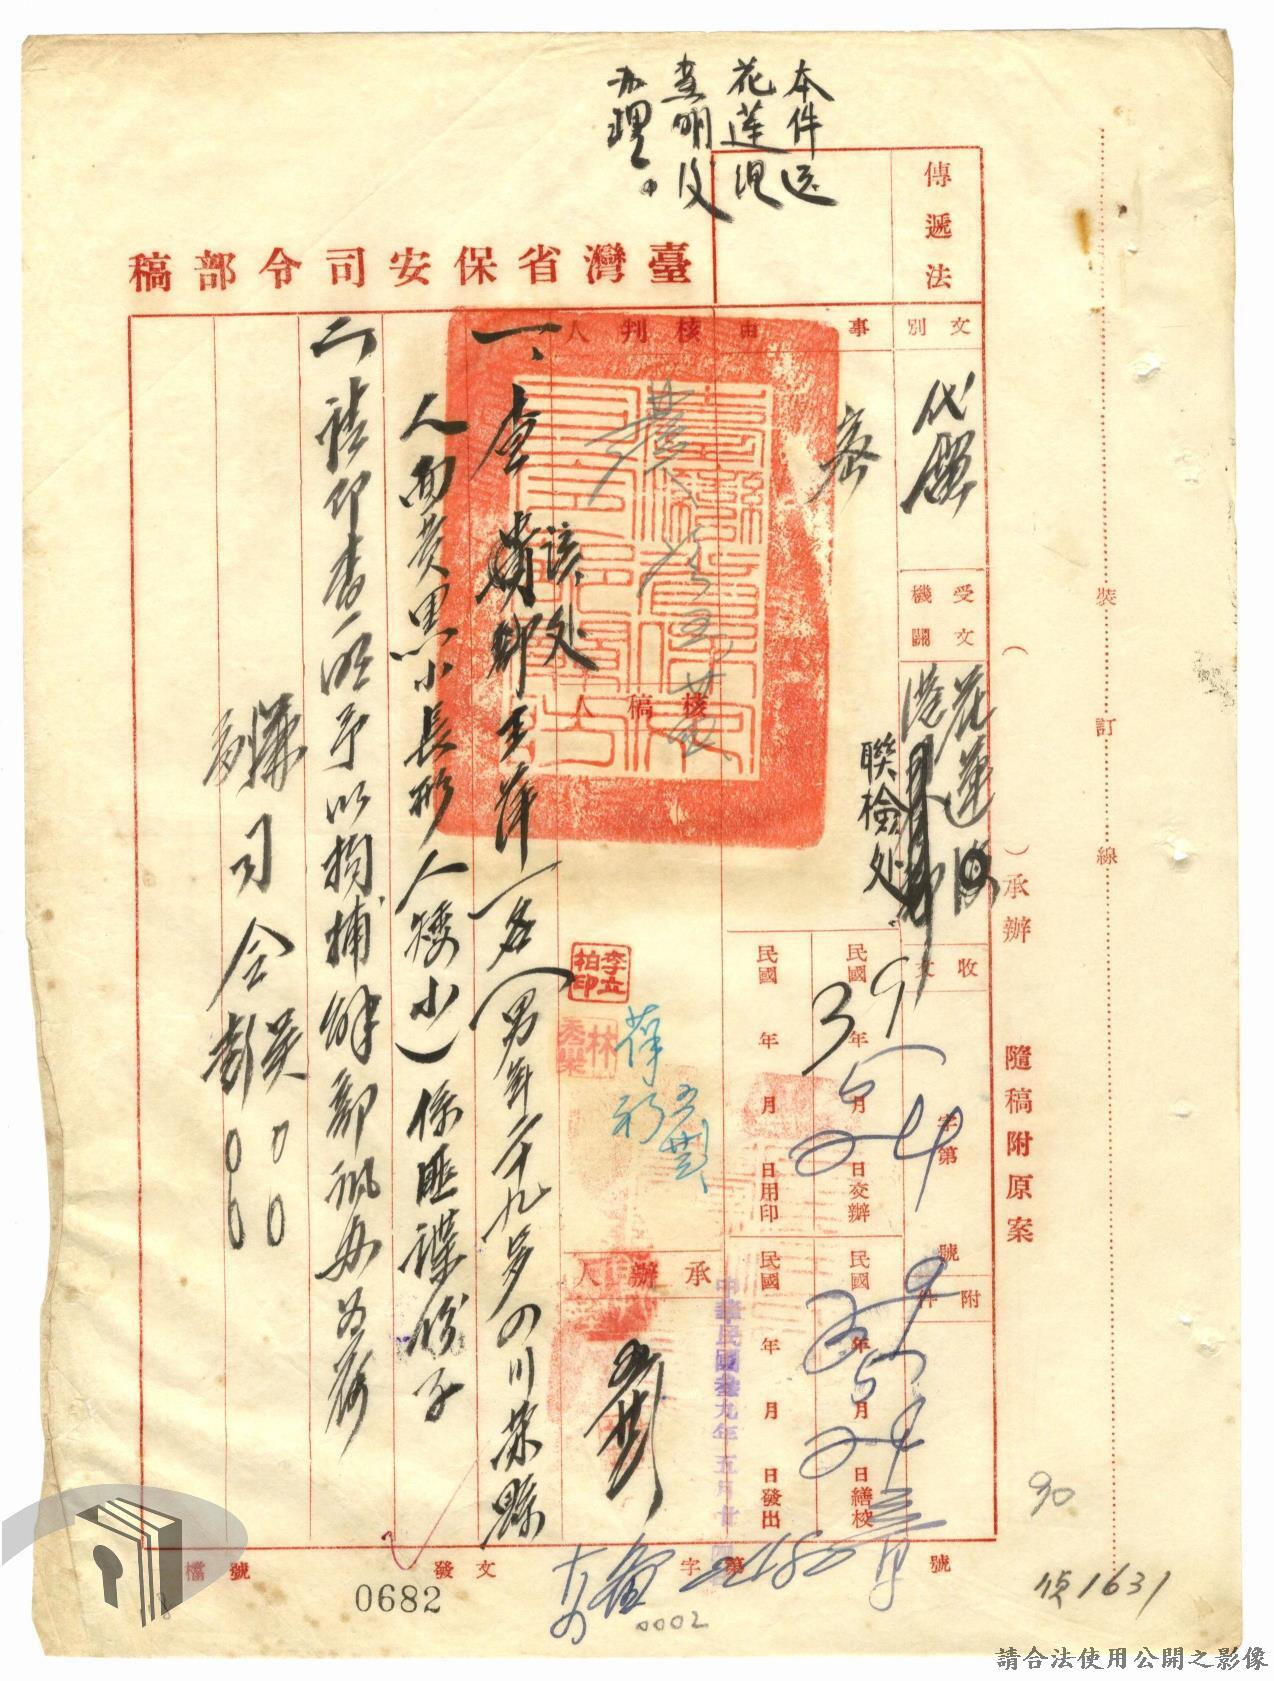 本件送
花蓮港
查明後
办理。
傳遞法
臺灣省保安司令部稿
文別
代電
受文機關
花蓮
港
聯檢处
收文
字第
號
附件
事由
密
核判人
核稿人
承辦人
民國 年 月 日交辦
39 5 24
民國 年 月 日繕校
39 5 24
民國 年 月 日用印
民國 年 月 日發出
中華民國叁九年五月廿四
李立柏印
林秀欒
一、查
该处
王萍一名(男年二十九岁四川蒜縣
人面黄黑小長形人矮小)係匪諜份子
二、希即查明予以拘捕解部訊办为荷
兼司令吳00
副司令彭00
檔號
發文
字第
號
0682
0002
2182
裝
訂
線
( )承辦
隨稿附原案
90
偵1631
請合法使用公開之影像